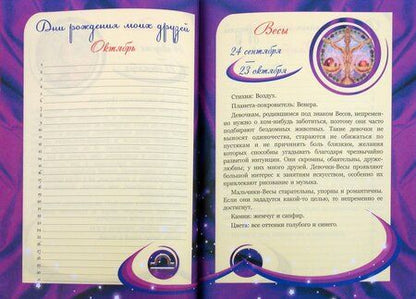 Дни рождения моих друзей
Октябрь
Весы
24 сентября
—
23 октября
Стихия: Воздух.
Планета-покровитель: Венера.
Девочкам, родившимся под знаком Весов, непремен-
но нужно о ком-нибудь заботиться, поэтому они часто
подбирают бездомных животных. Такие девочки не
выносят одиночества, стараются не обижаться по
пустякам и не причинять боль близким, желания
которых способны угадывать благодаря чрезвычайно
развитой интуиции. Они скромны, обаятельны, друже-
любны, у них много друзей. Девочки-Весы проявляют
большой интерес к занятиям искусством, особенно их
привлекают рисование и музыка.
Мальчики-Весы старательны, упорны и романтичны.
Если они зададутся какой-то целью, то непременно ее
достигнут.
Камни: жемчуг и сапфир.
Цвета: все оттенки голубого и синего.